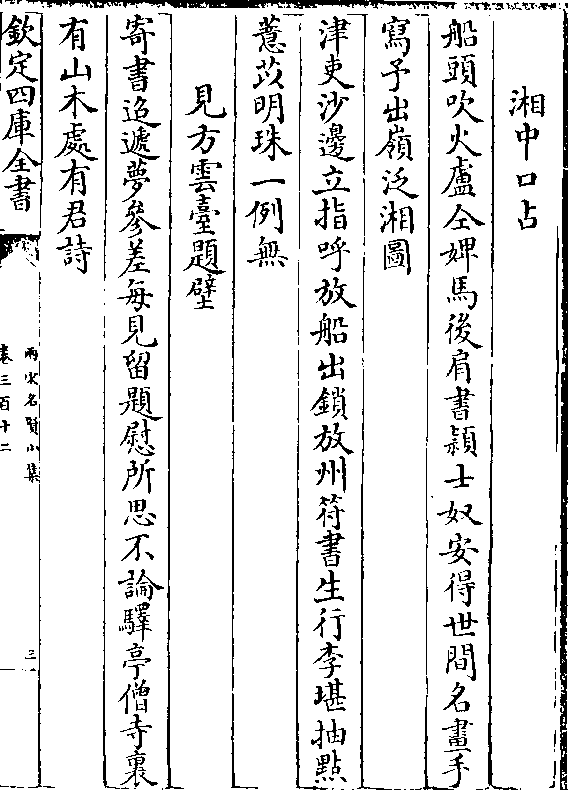 湘中口占
船頭吹火盧仝婢馬後肩書潁士奴安得世間名畫手
寫予出嶺泛湘圖
津吏沙邊立指呼放船出鎖放州符書生行李堪抽點
薏苡明珠一例無
見方雲臺題壁
寄書迢遞夢參差每見留題慰所思不論驛亭僧寺裏
有山木處有君詩
欽定四庫全書
兩宋名賢小集
卷三百十二
三